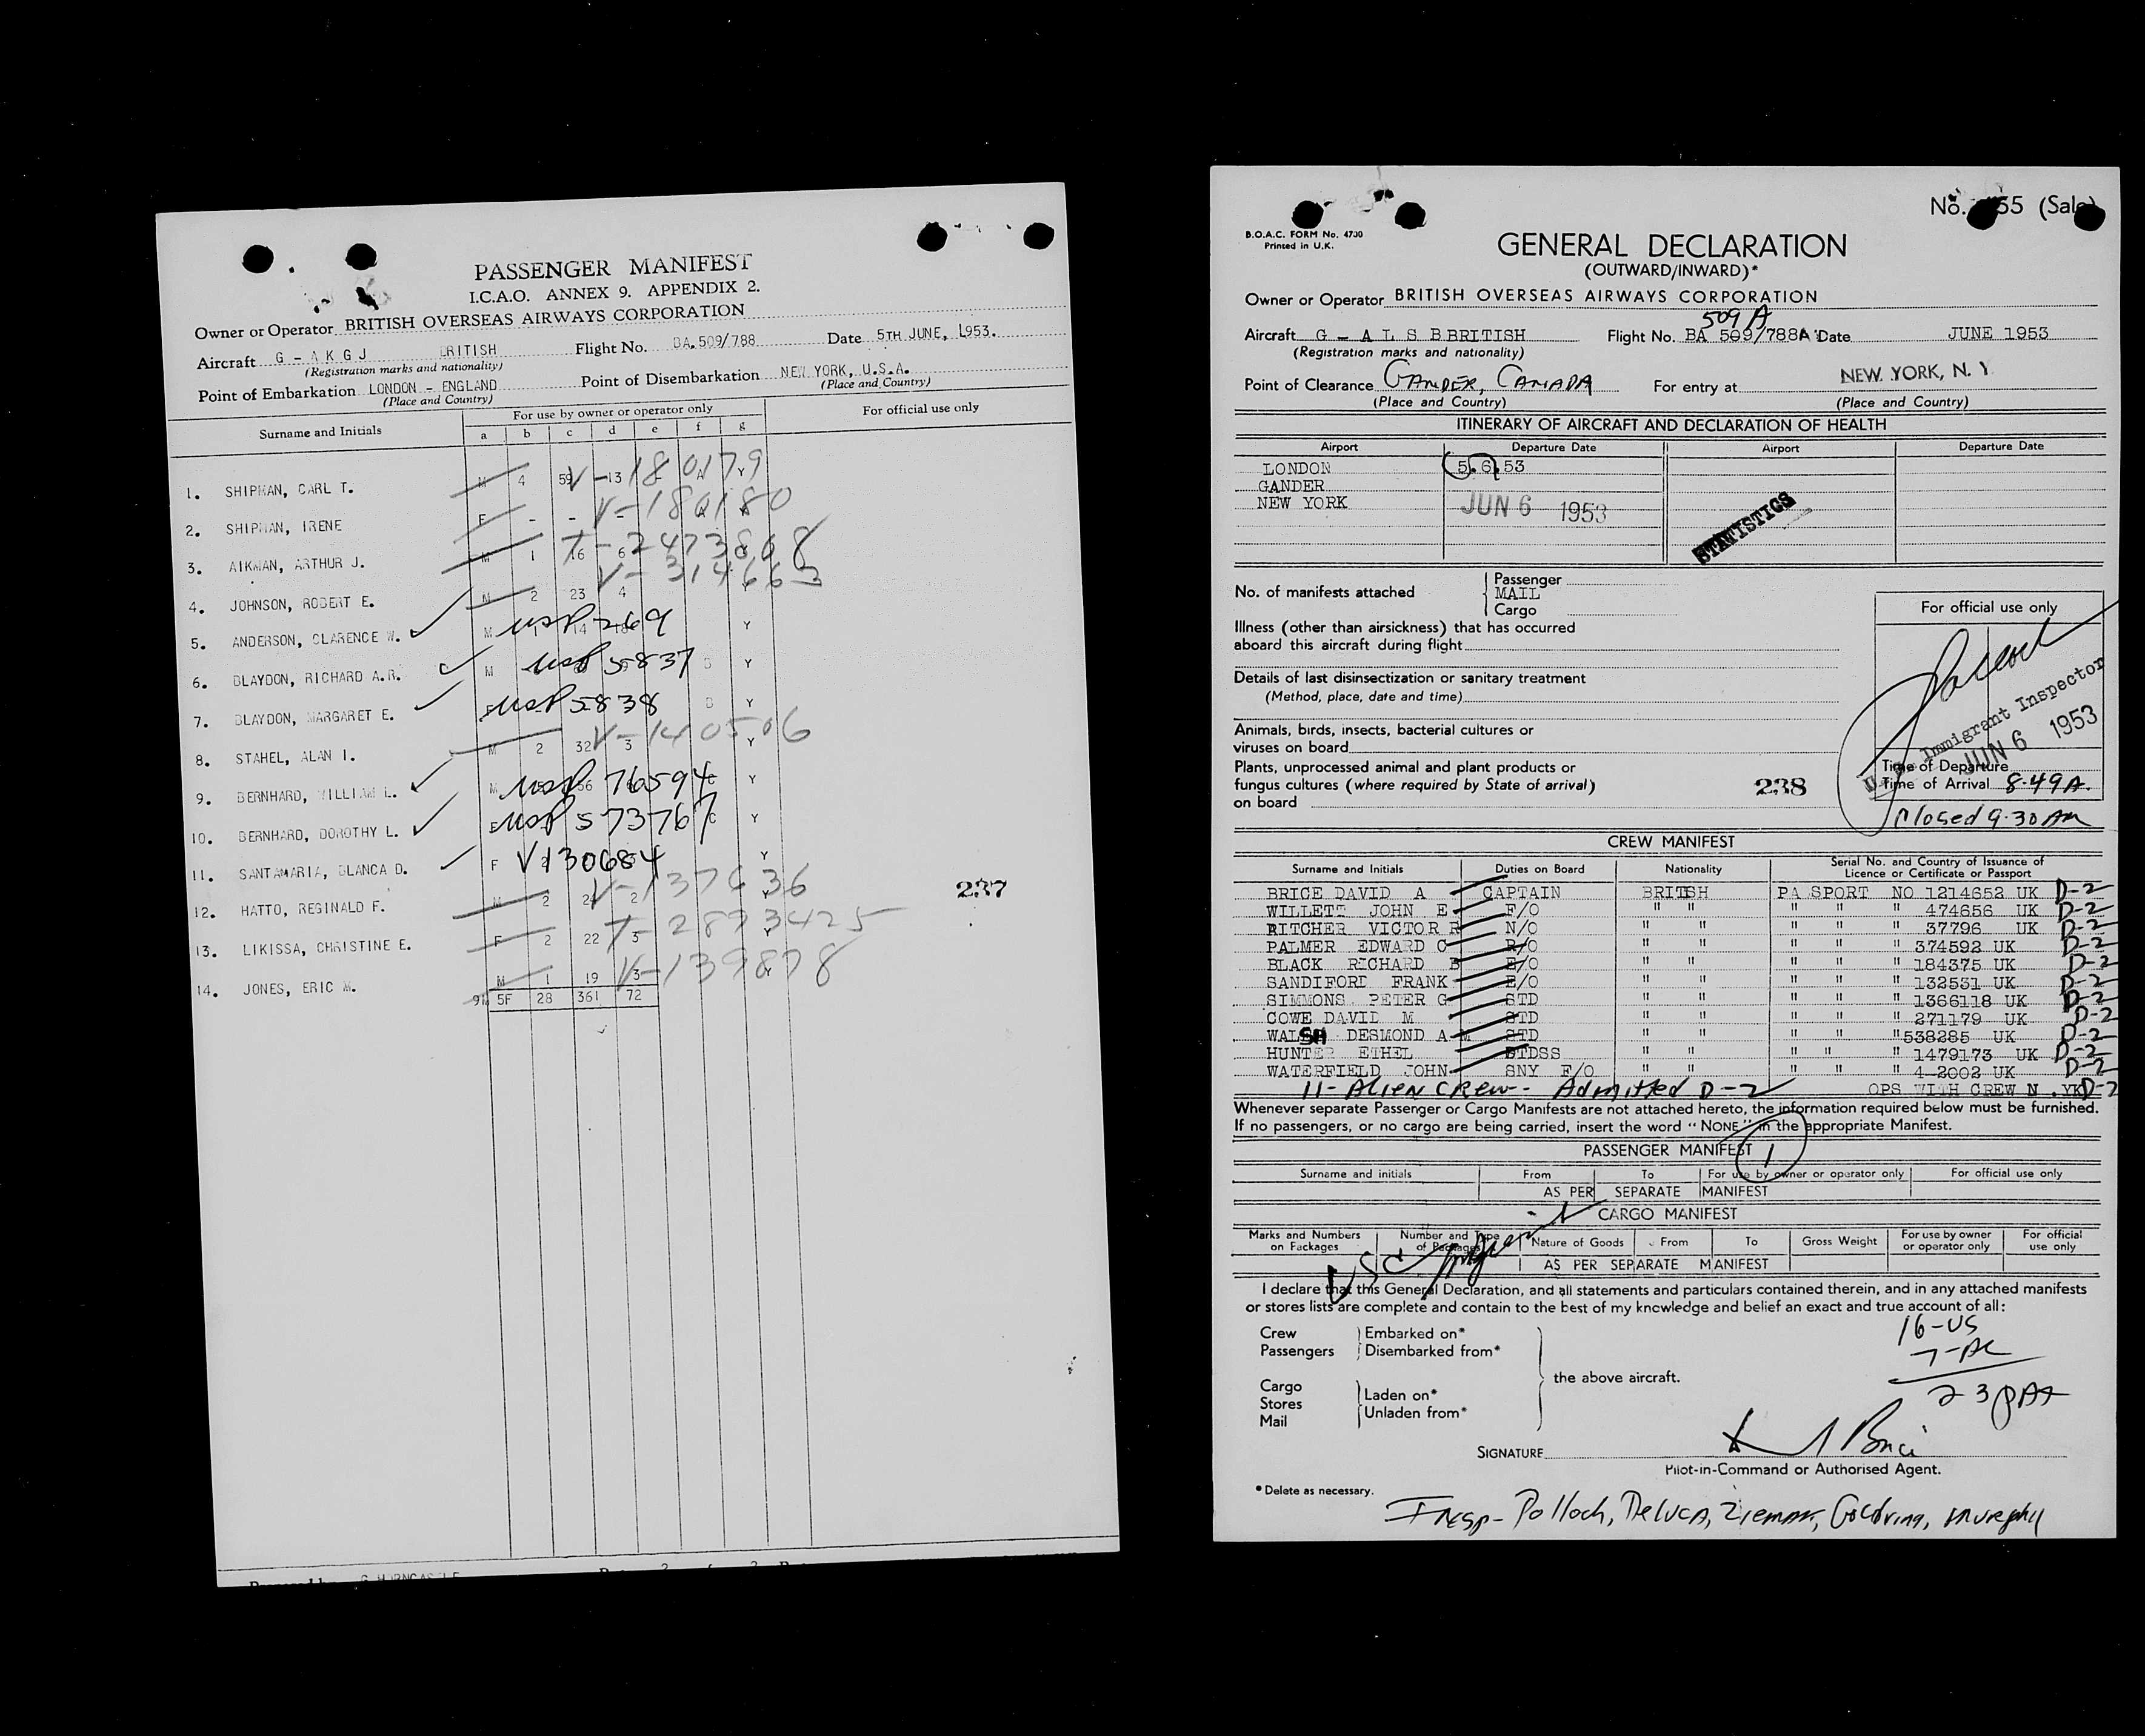 PASSENGER MANIFEST
I.C.A.O. ANNEX 9. APPENDIX 2.
Owner or Operator BRITISH OVERSEAS AIRWAYS CORPORATION
Aircraft G - A K G J BRITISH Flight No. BA.509/788 Date 5TH JUNE, 1953.
(Registration marks and nationality)
Point of Embarkation LONDON - ENGLAND Point of Disembarkation NEW YORK, U.S.A.
(Place and Country) (Place and Country)
Surname and Initials For use by owner or operator only For official use only
a b c d e f g
1. SHIPMAN, CARL T. M 4 59 13 V-180179 Y
2. SHIPMAN, IRENE F - - - V-180180
3. AIKMAN, ARTHUR J. M 1 16 6 T-2473808
4. JOHNSON, ROBERT E. M 2 23 4 V-314663
5. ANDERSON, CLARENCE W. M 1 14 USP 269 Y
6. BLAYDON, RICHARD A.R. M USP 5837 B Y
7. BLAYDON, MARGARET E. F USP 5838 B Y
8. STAHEL, ALAN I. M 2 32 3 V-140506 Y
9. BERNHARD, WILLIAM L. M 56 USP 76594 C Y
10. BERNHARD, DOROTHY L. F USP 573767 C Y
11. SANTAMARIA, BLANCA D. F V130684 Y
12. HATTO, REGINALD F. M 2 24 2 V-137636 Y
237
13. LIKISSA, CHRISTINE E. F 2 22 3 T-2873425 Y
14. JONES, ERIC M. M 1 19 3 V-139878 Y
9M 5F 28 361 72
G HORNCASTLE
No. 55 (Sale)
B.O.A.C. FORM No. 4730
Printed in U.K.
GENERAL DECLARATION
(OUTWARD/INWARD)*
Owner or Operator BRITISH OVERSEAS AIRWAYS CORPORATION
509 A
Aircraft G - A L S B BRITISH Flight No. BA 509/788A Date JUNE 1953
(Registration marks and nationality)
Point of Clearance GANDER, CANADA For entry at NEW YORK, N. Y
(Place and Country) (Place and Country)
ITINERARY OF AIRCRAFT AND DECLARATION OF HEALTH
Airport Departure Date Airport Departure Date
LONDON 5.6.53
GANDER
NEW YORK JUN 6 1953
STATISTICS
No. of manifests attached
Passenger
MAIL
Cargo
For official use only
Illness (other than airsickness) that has occurred
aboard this aircraft during flight
Details of last disinsectization or sanitary treatment
(Method, place, date and time)
Animals, birds, insects, bacterial cultures or
viruses on board
Plants, unprocessed animal and plant products or
fungus cultures (where required by State of arrival)
on board
238
U.S. Immigrant Inspector
JUN 6 1953
Time of Departure
Time of Arrival 8-49A.
Closed 9-30 AM
CREW MANIFEST
Surname and Initials Duties on Board Nationality Serial No. and Country of Issuance of
Licence or Certificate or Passport
BRICE DAVID A CAPTAIN BRITISH PA SPORT NO 1214652 UK D-2
WILLETT JOHN E F/O " " " " " 474656 UK D-2
RITCHER VICTOR R N/O " " " " " 37796 UK D-2
PALMER EDWARD C R/O " " " " " 374592 UK D-2
BLACK RICHARD B E/O " " " " " 184375 UK D-2
SANDIFORD FRANK E/O " " " " " 132531 UK D-2
SIMMONS PETER G STD " " " " " 1366118 UK D-2
COWE DAVID M STD " " " " " 271179 UK D-2
WALSH DESMOND A M STD " " " " " 538285 UK D-2
HUNTER ETHEL STDSS " " " " " 1479173 UK D-2
WATERFIELD JOHN SNY F/O " " " " " 4-2002 UK D-2
11- Alien Crew - Admitted D-2 OPS WITH CREW N.YK D-2
Whenever separate Passenger or Cargo Manifests are not attached hereto, the information required below must be furnished.
If no passengers, or no cargo are being carried, insert the word "NONE" in the appropriate Manifest.
PASSENGER MANIFEST 1
Surname and initials From To For use by owner or operator only For official use only
AS PER SEPARATE MANIFEST
CARGO MANIFEST
Marks and Numbers on Packages Number and Type of Packages Nature of Goods From To Gross Weight For use by owner or operator only For official use only
AS PER SEPARATE MANIFEST
I declare that this General Declaration, and all statements and particulars contained therein, and in any attached manifests
or stores lists are complete and contain to the best of my knowledge and belief an exact and true account of all:
Crew Embarked on*
Passengers Disembarked from*
the above aircraft.
Cargo Laden on*
Stores
Mail Unladen from*
16-US
7-AL
23 PAX
SIGNATURE
Pilot-in-Command or Authorised Agent.
*Delete as necessary.
Insp- Polloch, DeLuca, Zieman, Goldring, Murphy